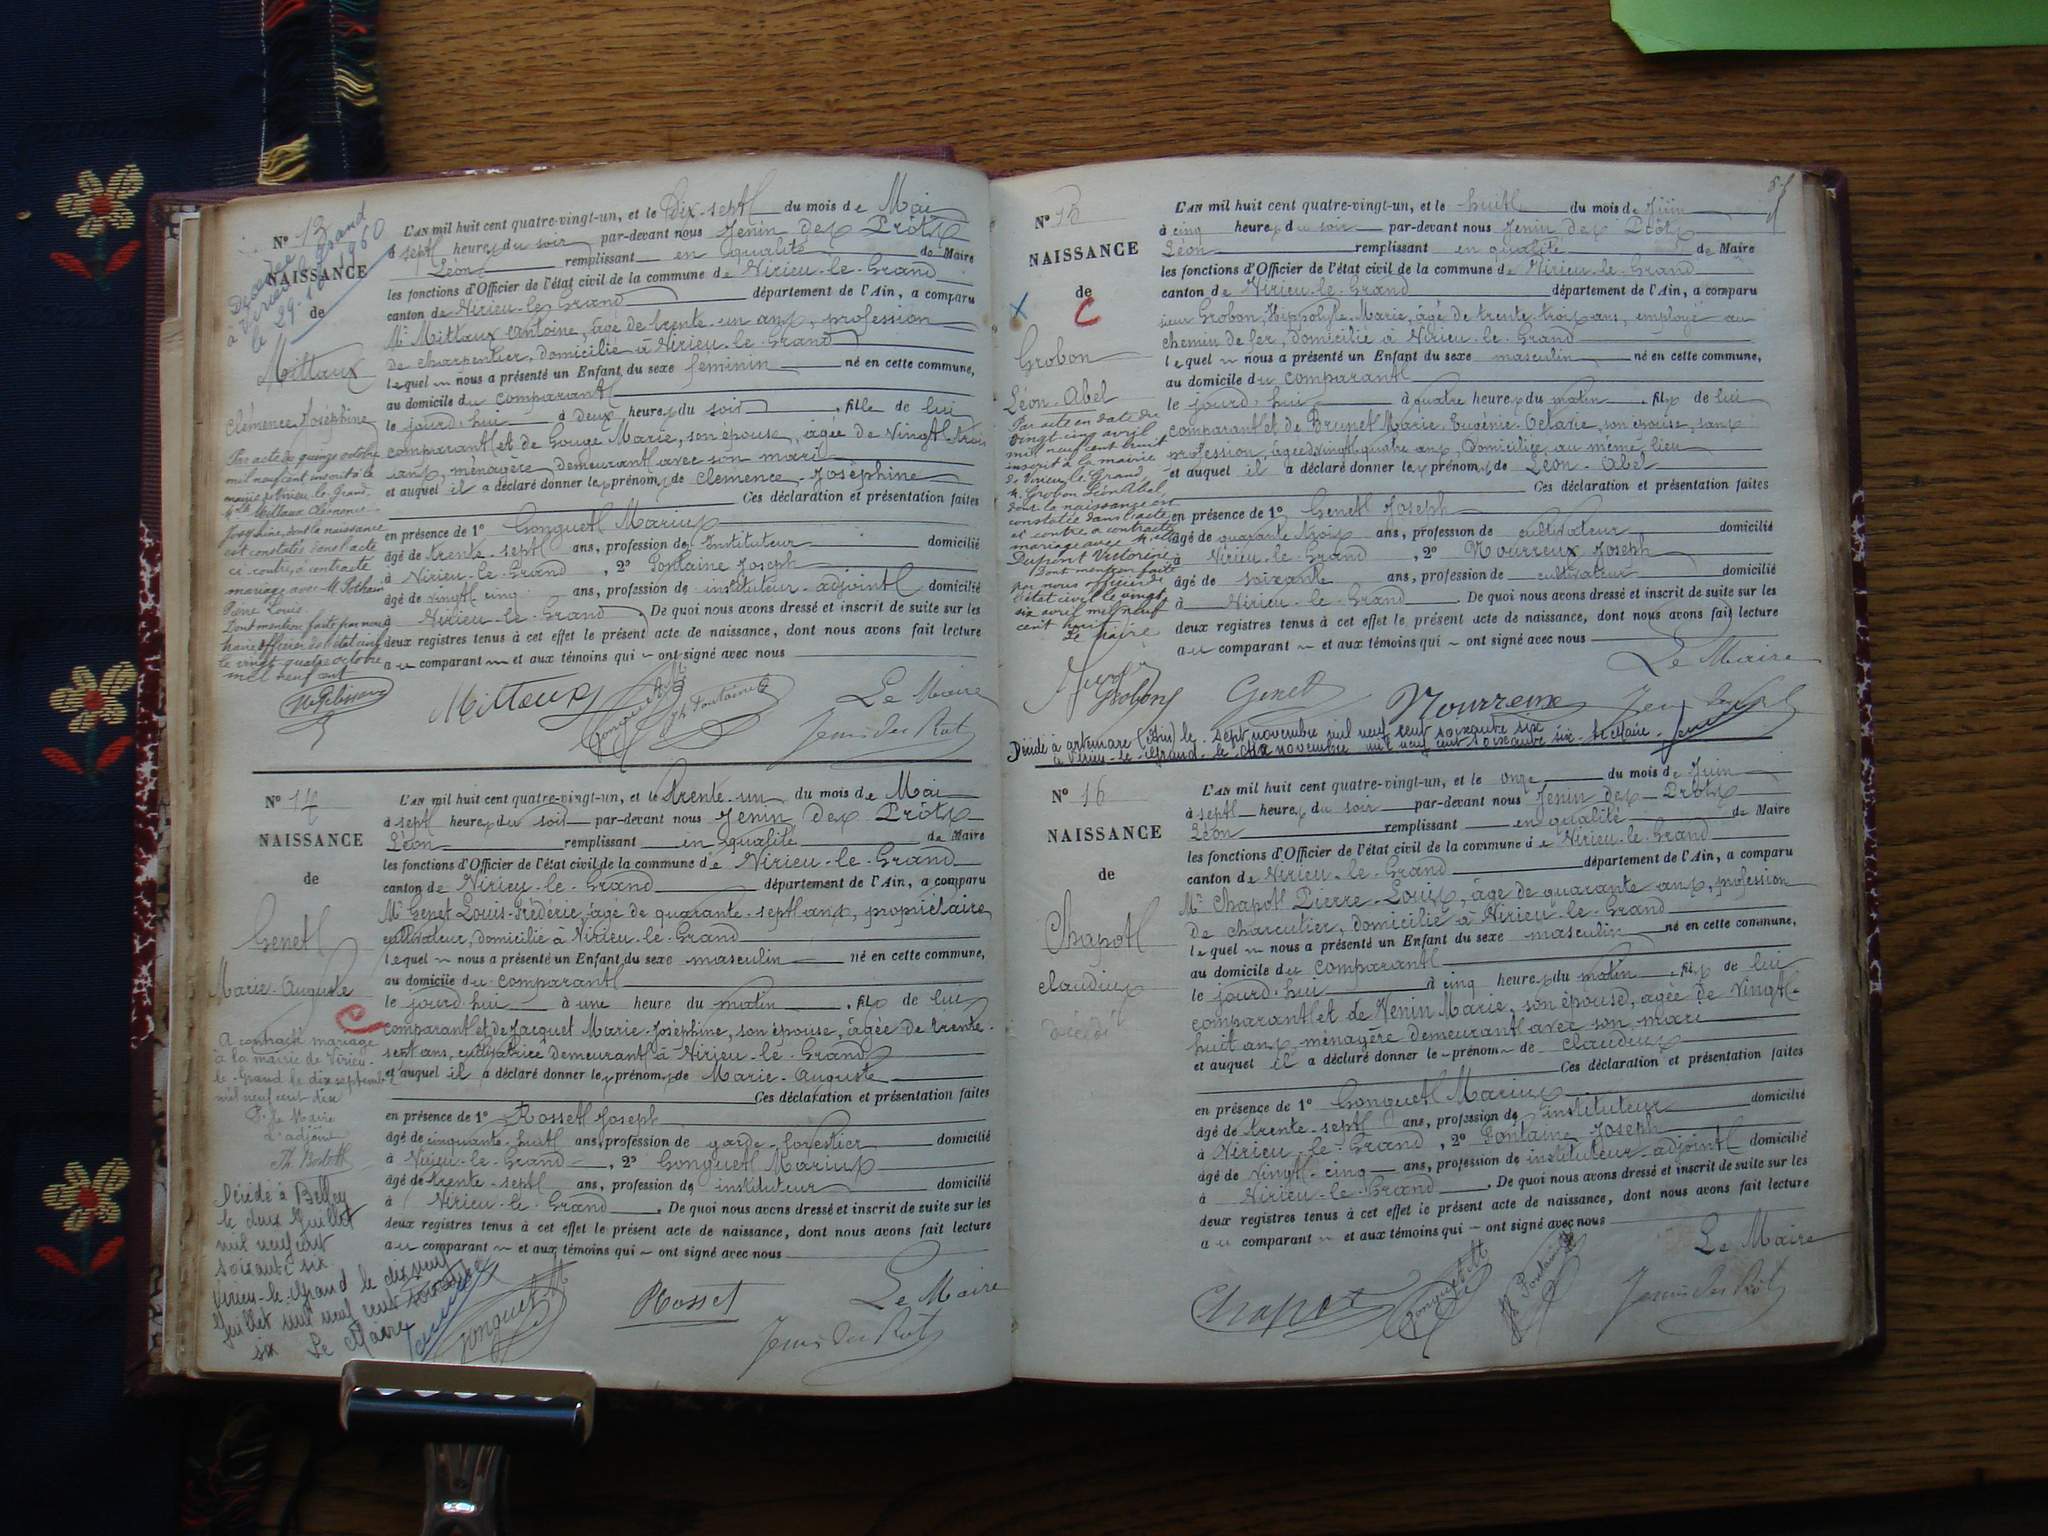 Nº 13
NAISSANCE
de
Mittaux
Clémence Joséphine
Décédée
à Virieu le Grand
le 29.10.1960
Par acte du quinze octobre
mil neuf cent inscrit à la
mairie de Virieu-le-Grand,
Mlle Mittaux Clémence
Joséphine, dont la naissance
est constatée dans l'acte
ci-contre, a contracté
mariage avec M.
Pierre Louis.
Dont mention faite par nous
maire officier de l'état civil
le vingt quatre octobre
mil neuf cent
L'AN mil huit cent quatre-vingt-un, et le Dix-sept du mois de Mai
à sept heures du soir par-devant nous Jenin des Prôts
Léon remplissant en qualité de Maire
les fonctions d'Officier de l'état civil de la commune de Virieu-le-Grand
canton de Virieu-le-Grand département de l'Ain, a comparu
Mr Mittaux Antoine, âgé de trente-un ans, profession
de charpentier, domicilié à Virieu-le-Grand
lequel nous a présenté un Enfant du sexe féminin né en cette commune,
au domicile du comparant
le jourd'hui à deux heures du soir, fille de lui
comparant et de Gouge Marie, son épouse, âgée de vingt-trois
ans, ménagère demeurant avec son mari
et auquel il a déclaré donner les prénoms de Clémence-Joséphine
Ces déclaration et présentation faites
en présence de 1º Gonguet Marius
âgé de trente-sept ans, profession de Instituteur domicilié
à Virieu-le-Grand, 2º Fontaine Joseph
âgé de vingt cinq ans, profession de instituteur-adjoint domicilié
à Virieu-le-Grand. De quoi nous avons dressé et inscrit de suite sur les
deux registres tenus à cet effet le présent acte de naissance, dont nous avons fait lecture
au comparant et aux témoins qui ont signé avec nous
Le Maire
Mittaux Gonguet M Jh Fontaine Jenin des Prôts
Nº 14
NAISSANCE
de
Genet
Marie-Auguste
C
A contracté mariage
à la mairie de Virieu-
le-Grand le dix septembre
mil neuf cent dix
Pr le Maire
L'adjoint
Décédé à Belley
le deux Juillet
mil neuf cent
soixante six
Virieu-le-Grand le dix neuf
Juillet mil neuf cent soixante
six Le Maire
L'AN mil huit cent quatre-vingt-un, et le Trente-un du mois de Mai
à sept heures du soir par-devant nous Jenin des Prôts
Léon remplissant en qualité de Maire
les fonctions d'Officier de l'état civil de la commune de Virieu-le-Grand
canton de Virieu-le-Grand département de l'Ain, a comparu
Mr Genet Louis-Frédéric, âgé de quarante-sept ans, propriétaire
cultivateur, domicilié à Virieu-le-Grand
lequel nous a présenté un Enfant du sexe masculin né en cette commune,
au domicile du comparant
le jourd'hui à une heure du matin, fils de lui
comparant et de Jacquet Marie-Joséphine, son épouse, âgée de trente-
sept ans, cultivatrice demeurant à Virieu-le-Grand
et auquel il a déclaré donner les prénoms de Marie-Auguste
Ces déclaration et présentation faites
en présence de 1º Rosset Joseph
âgé de cinquante-huit ans, profession de garde-forestier domicilié
à Virieu-le-Grand, 2º Gonguet Marius
âgé de trente-sept ans, profession de instituteur domicilié
à Virieu-le-Grand. De quoi nous avons dressé et inscrit de suite sur les
deux registres tenus à cet effet le présent acte de naissance, dont nous avons fait lecture
au comparant et aux témoins qui ont signé avec nous
Le Maire
Gonguet M Rosset Jenin des Prôts
Nº 15
NAISSANCE
de
C
Grobon
Léon-Abel
Par acte en date du
vingt-cinq avril
mil neuf cent huit
inscrit à la mairie
de Virieu-le-Grand,
M. Grobon Léon Abel,
dont la naissance est
constatée dans l'acte
ci-contre a contracté
mariage avec Mlle
Dupont Victorine
Dont mention faite
par nous officier de
l'état civil le vingt-
six avril mil neuf
cent huit
Le Maire
L'AN mil huit cent quatre-vingt-un, et le huit du mois de Juin
à cinq heures du soir par-devant nous Jenin des Prôts
Léon remplissant en qualité de Maire
les fonctions d'Officier de l'état civil de la commune de Virieu-le-Grand
canton de Virieu-le-Grand département de l'Ain, a comparu
sieur Grobon, Hippolyte-Marie, âgé de trente-trois ans, employé au
chemin de fer, domicilié à Virieu-le-Grand
lequel nous a présenté un Enfant du sexe masculin né en cette commune,
au domicile du comparant
le jourd'hui à quatre heures du matin, fils de lui
comparant et de Brunet Marie-Eugénie-Octavie, son épouse, sans
profession, âgée de vingt-quatre ans, domiciliée au même lieu
et auquel il a déclaré donner les prénoms de Léon-Abel
Ces déclaration et présentation faites
en présence de 1º Genet Joseph
âgé de quarante trois ans, profession de cultivateur domicilié
à Virieu-le-Grand, 2º Nourreux Joseph
âgé de soixante ans, profession de cultivateur domicilié
à Virieu-le-Grand. De quoi nous avons dressé et inscrit de suite sur les
deux registres tenus à cet effet le présent acte de naissance, dont nous avons fait lecture
au comparant et aux témoins qui ont signé avec nous
Le Maire
Grobon Genet Nourreux Jenin des Prôts
Décédé à Artemare (Ain) le sept novembre mil neuf cent soixante six
à Virieu-le-Grand le dix novembre mil neuf cent soixante six. Le Maire
Nº 16
NAISSANCE
de
Chapot
Claudius
décédé
L'AN mil huit cent quatre-vingt-un, et le onze du mois de Juin
à sept heures du soir par-devant nous Jenin des Prôts
Léon remplissant en qualité de Maire
les fonctions d'Officier de l'état civil de la commune de Virieu-le-Grand
canton de Virieu-le-Grand département de l'Ain, a comparu
Mr Chapot Pierre-Louis, âgé de quarante ans, profession
de charcutier, domicilié à Virieu-le-Grand
lequel nous a présenté un Enfant du sexe masculin né en cette commune,
au domicile du comparant
le jourd'hui à cinq heures du matin, fils de lui
comparant et de Venin Marie, son épouse, âgée de vingt-
huit ans, ménagère demeurant avec son mari
et auquel il a déclaré donner le prénom de Claudius
Ces déclaration et présentation faites
en présence de 1º Gonguet Marius
âgé de trente-sept ans, profession de instituteur domicilié
à Virieu-le-Grand, 2º Fontaine Joseph
âgé de vingt-cinq ans, profession de instituteur-adjoint domicilié
à Virieu-le-Grand. De quoi nous avons dressé et inscrit de suite sur les
deux registres tenus à cet effet le présent acte de naissance, dont nous avons fait lecture
au comparant et aux témoins qui ont signé avec nous
Le Maire
Chapot Gonguet M Jh Fontaine Jenin des Prôts